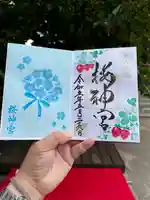 桜神宮
令和五年五月二十六日
桜神宮